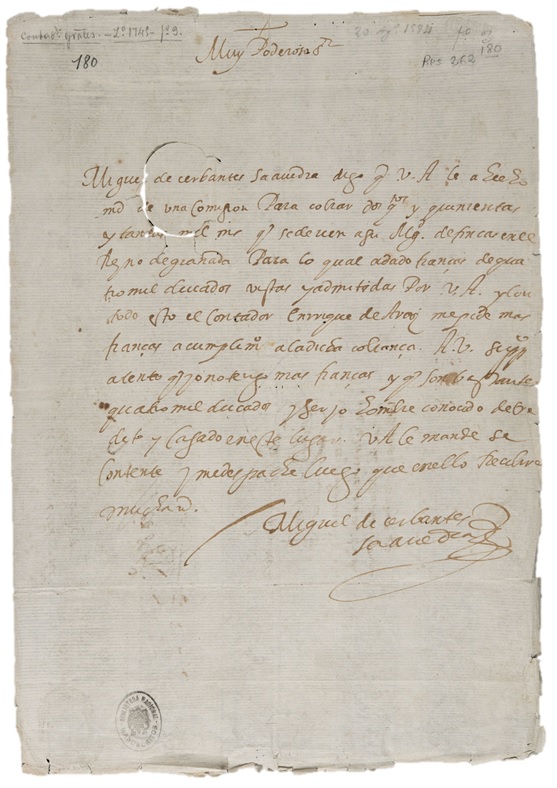 Contos. gnles. - Lo. 1745 - fo. 9.
20 ago. 1594
180
180
Res 262
Muy Poderoso Sr
Miguel de cerbantes Saauedra digo q V. A. le a Hecho
md de una Comision Para cobrar dos qos y quinientas
y tantas mil ms q se deuen a su Mg. de fincas en el
Reyno de granada Para lo qual a dado fianças de qua
tro mil ducados vistas y admitidas Por V. A. y con
todo esto el Contador Enrrique de Araiz me pide mas
fianças a cumplimo a la dicha cobrança. A. V. A. suppco
atento q yo no tengo mas fianças y q son bastantes
quatro mil ducados y ser yo hombre conocido de cre
dito y casado en este lugar. V A le mande se
Contente y me despache luego que en ello Recibire
mucha md.
Miguel de cerbantes
saauedra